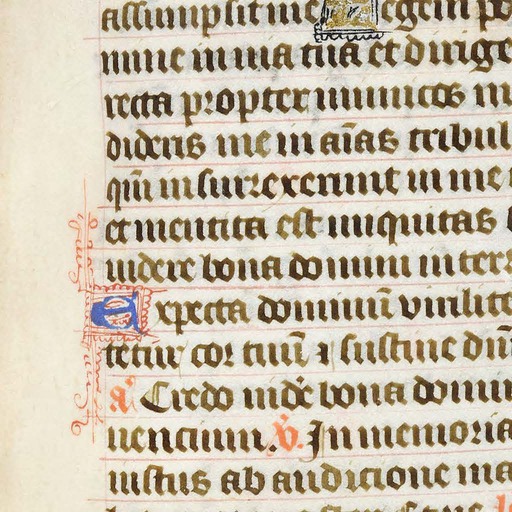 assumpsit me Legem po
mine in uia tua et dirige
recta propter inimicos m
dideris me in aīas tribul
qm̄ insurrexerunt in me
et mentita est iniquitas
uidere bona domini in terr
Expecta dominū virilite
tetur cor tuū ⁊ sustine dn̄
a Credo uidē bona domin
uencium. V. In memoria
iustus ab audicione ma